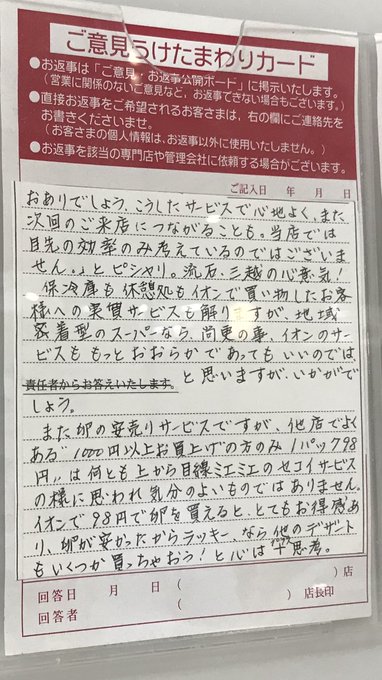 ご意見うけたまわりカード
●お返事は「ご意見・お返事公開ボード」に掲示いたします。
（営業に関係のないご意見など、お返事できない場合もございます。）
●直接お返事をご希望されるお客さまは、右の欄にご連絡先を
お書きくださいませ。
（お客さまの個人情報は、お返事以外に使用いたしません。）
●お返事を該当の専門店や管理会社に依頼する場合がございます。
ご記入日　年　月　日
おありでしょう。こうしたサービスで心地よく、また
次回のご来店につながることも。当店では
目先の効率のみ考えているのではございま
せん。』とピシャリ。流石、三越の心意気！
保冷庫も休憩処もイオンで買い物したお客
様への業質サービスも解りますが、地域
密着型のスーパーなら、尚更の事、イオンのサー
ビスももっとおおらかであってもいいのでは、
責任者からお答えいたします。
と思いますが、いかがで
しょう。
また卵の安売りサービスですが、他店でよく
ある“1000円以上お買上げの方のみ1パック98
円”は何とも上から目線ミエミエのセコイサービス
の様に思われ気分のよいものではありません。
イオンで98円で卵を買えると、とてもお得感あ
り、卵が安かったからラッキー、なら他のデザート
もいくつか買っちゃおう！と心は 思考。
回答日　月　日（　　　）店
回答者　（　　　）店長印